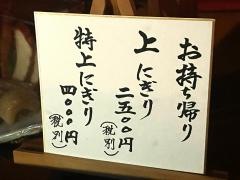 お持ち帰り
上にぎり
二五〇〇円
(税別)
特上にぎり
四〇〇〇円
(税別)